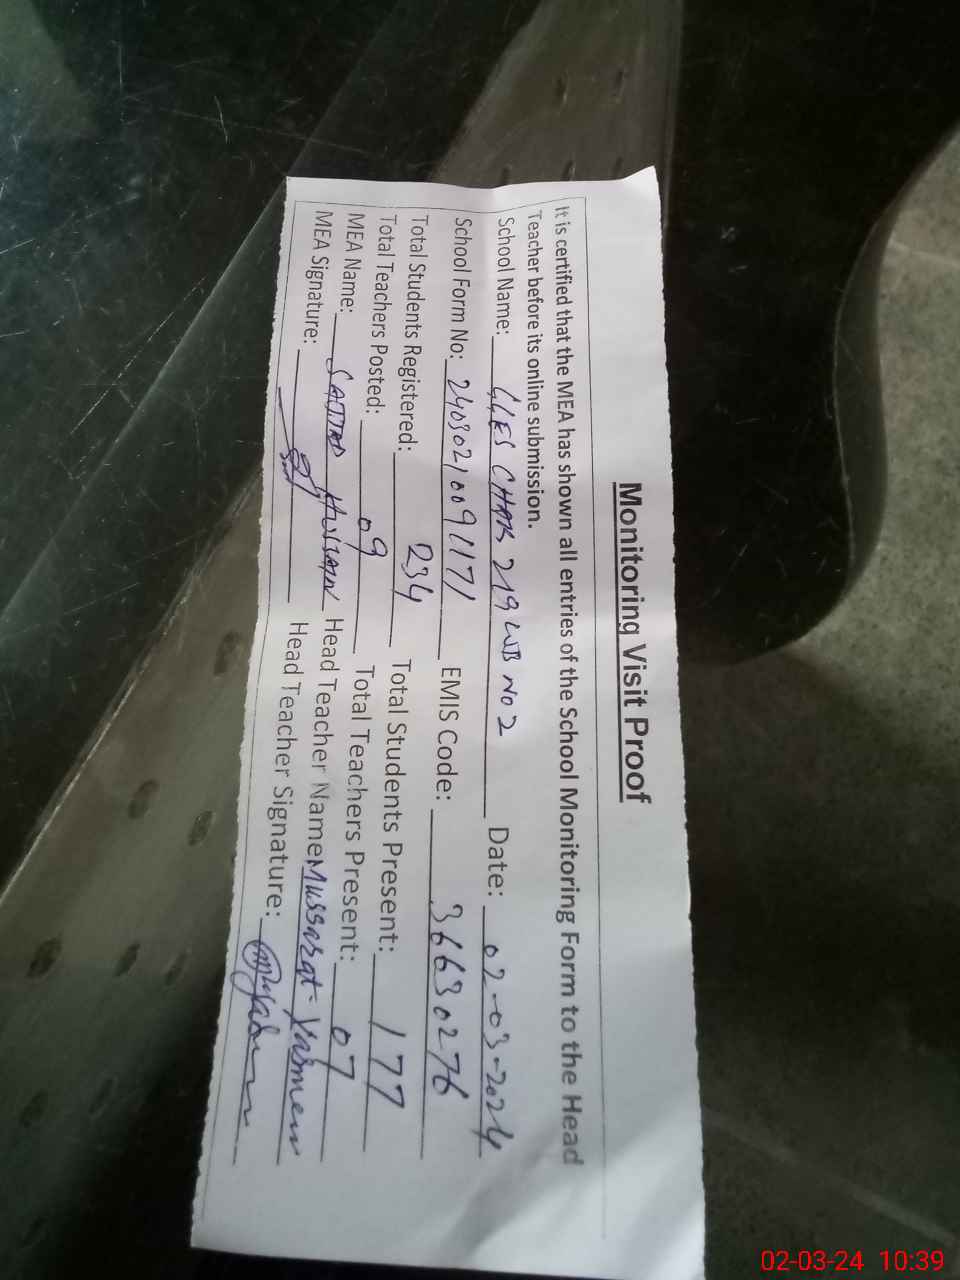 Monitoring Visit Proof
It is certified that the MEA has shown all entries of the School Monitoring Form to the Head
Teacher before its online submission.
School Name: GGES CHAK 219 WB No 2 Date: 02-03-2024
School Form No: 24030210091171 EMIS Code: 36630276
Total Students Registered: 234 Total Students Present: 177
Total Teachers Posted: 09 Total Teachers Present: 07
MEA Name: SAJJAD HUSSAIN Head Teacher Name Mussarat Yasmeen
MEA Signature: Head Teacher Signature:
02-03-24 10:39